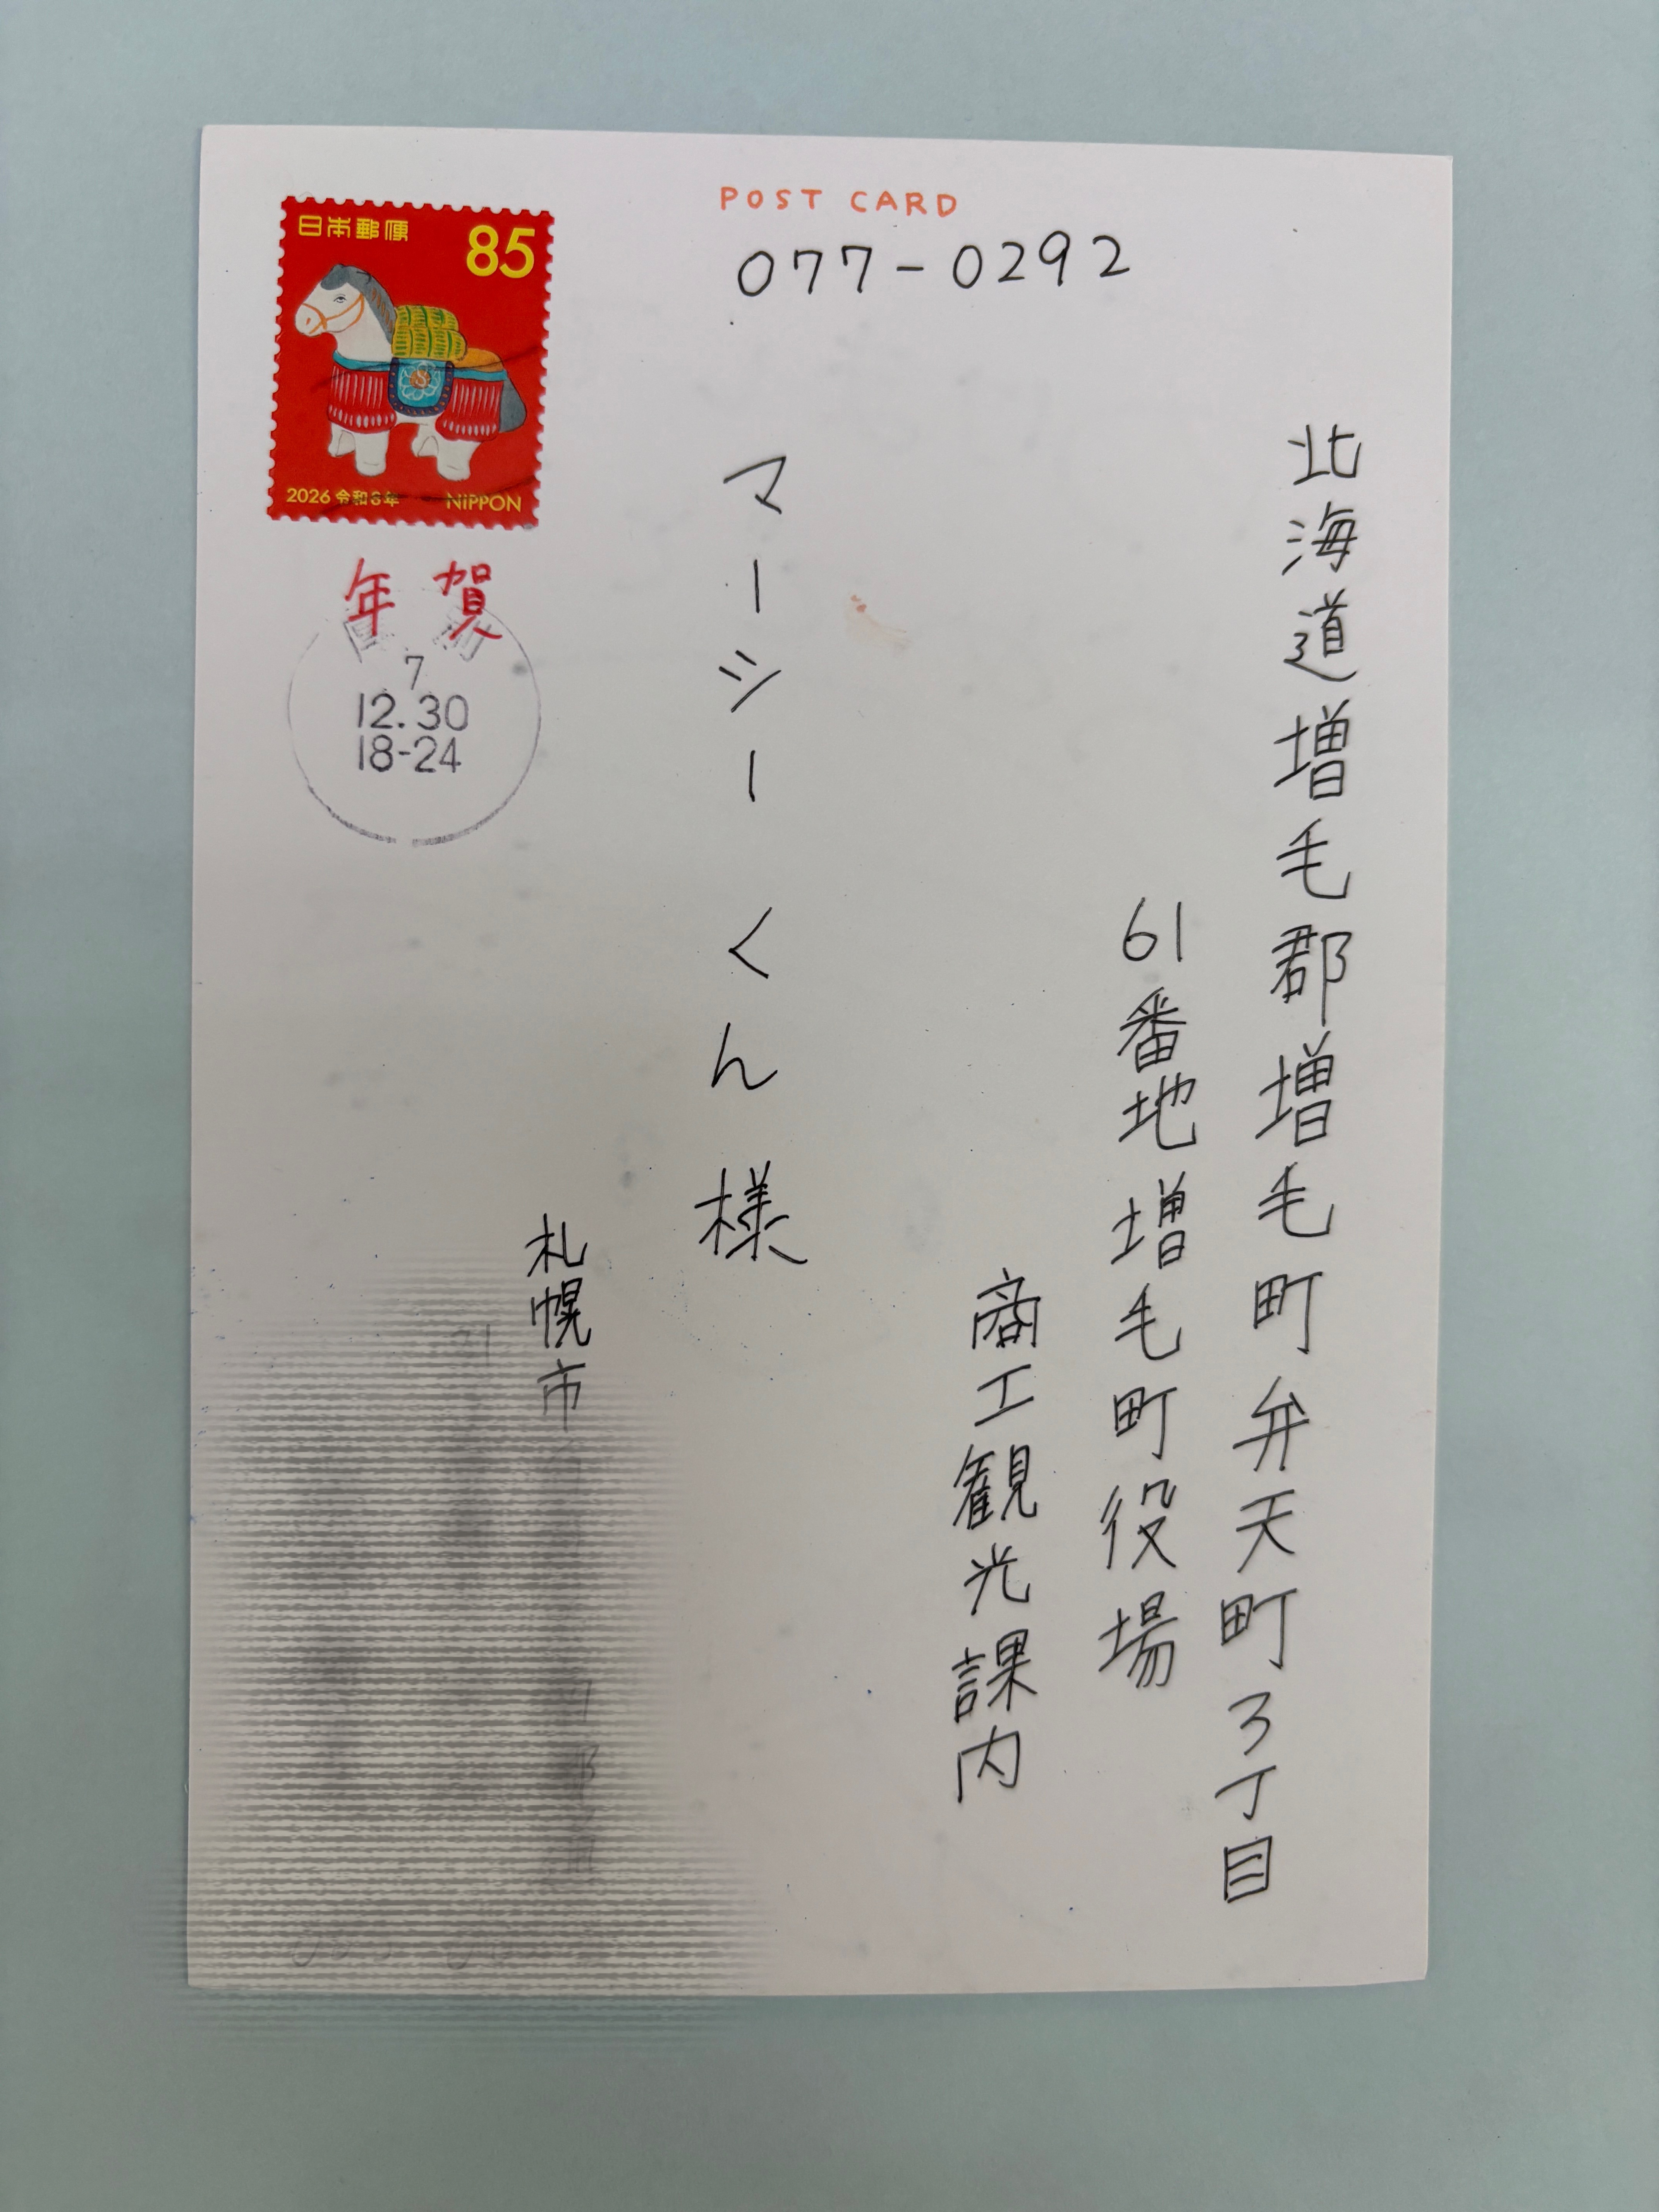 POST CARD
077-0292
北海道増毛郡増毛町弁天町3丁目
61番地増毛町役場
商工観光課内
マーシーくん様
日本郵便
85
2026 令和8年 NIPPON
年賀
7
12.30
18-24
札幌市